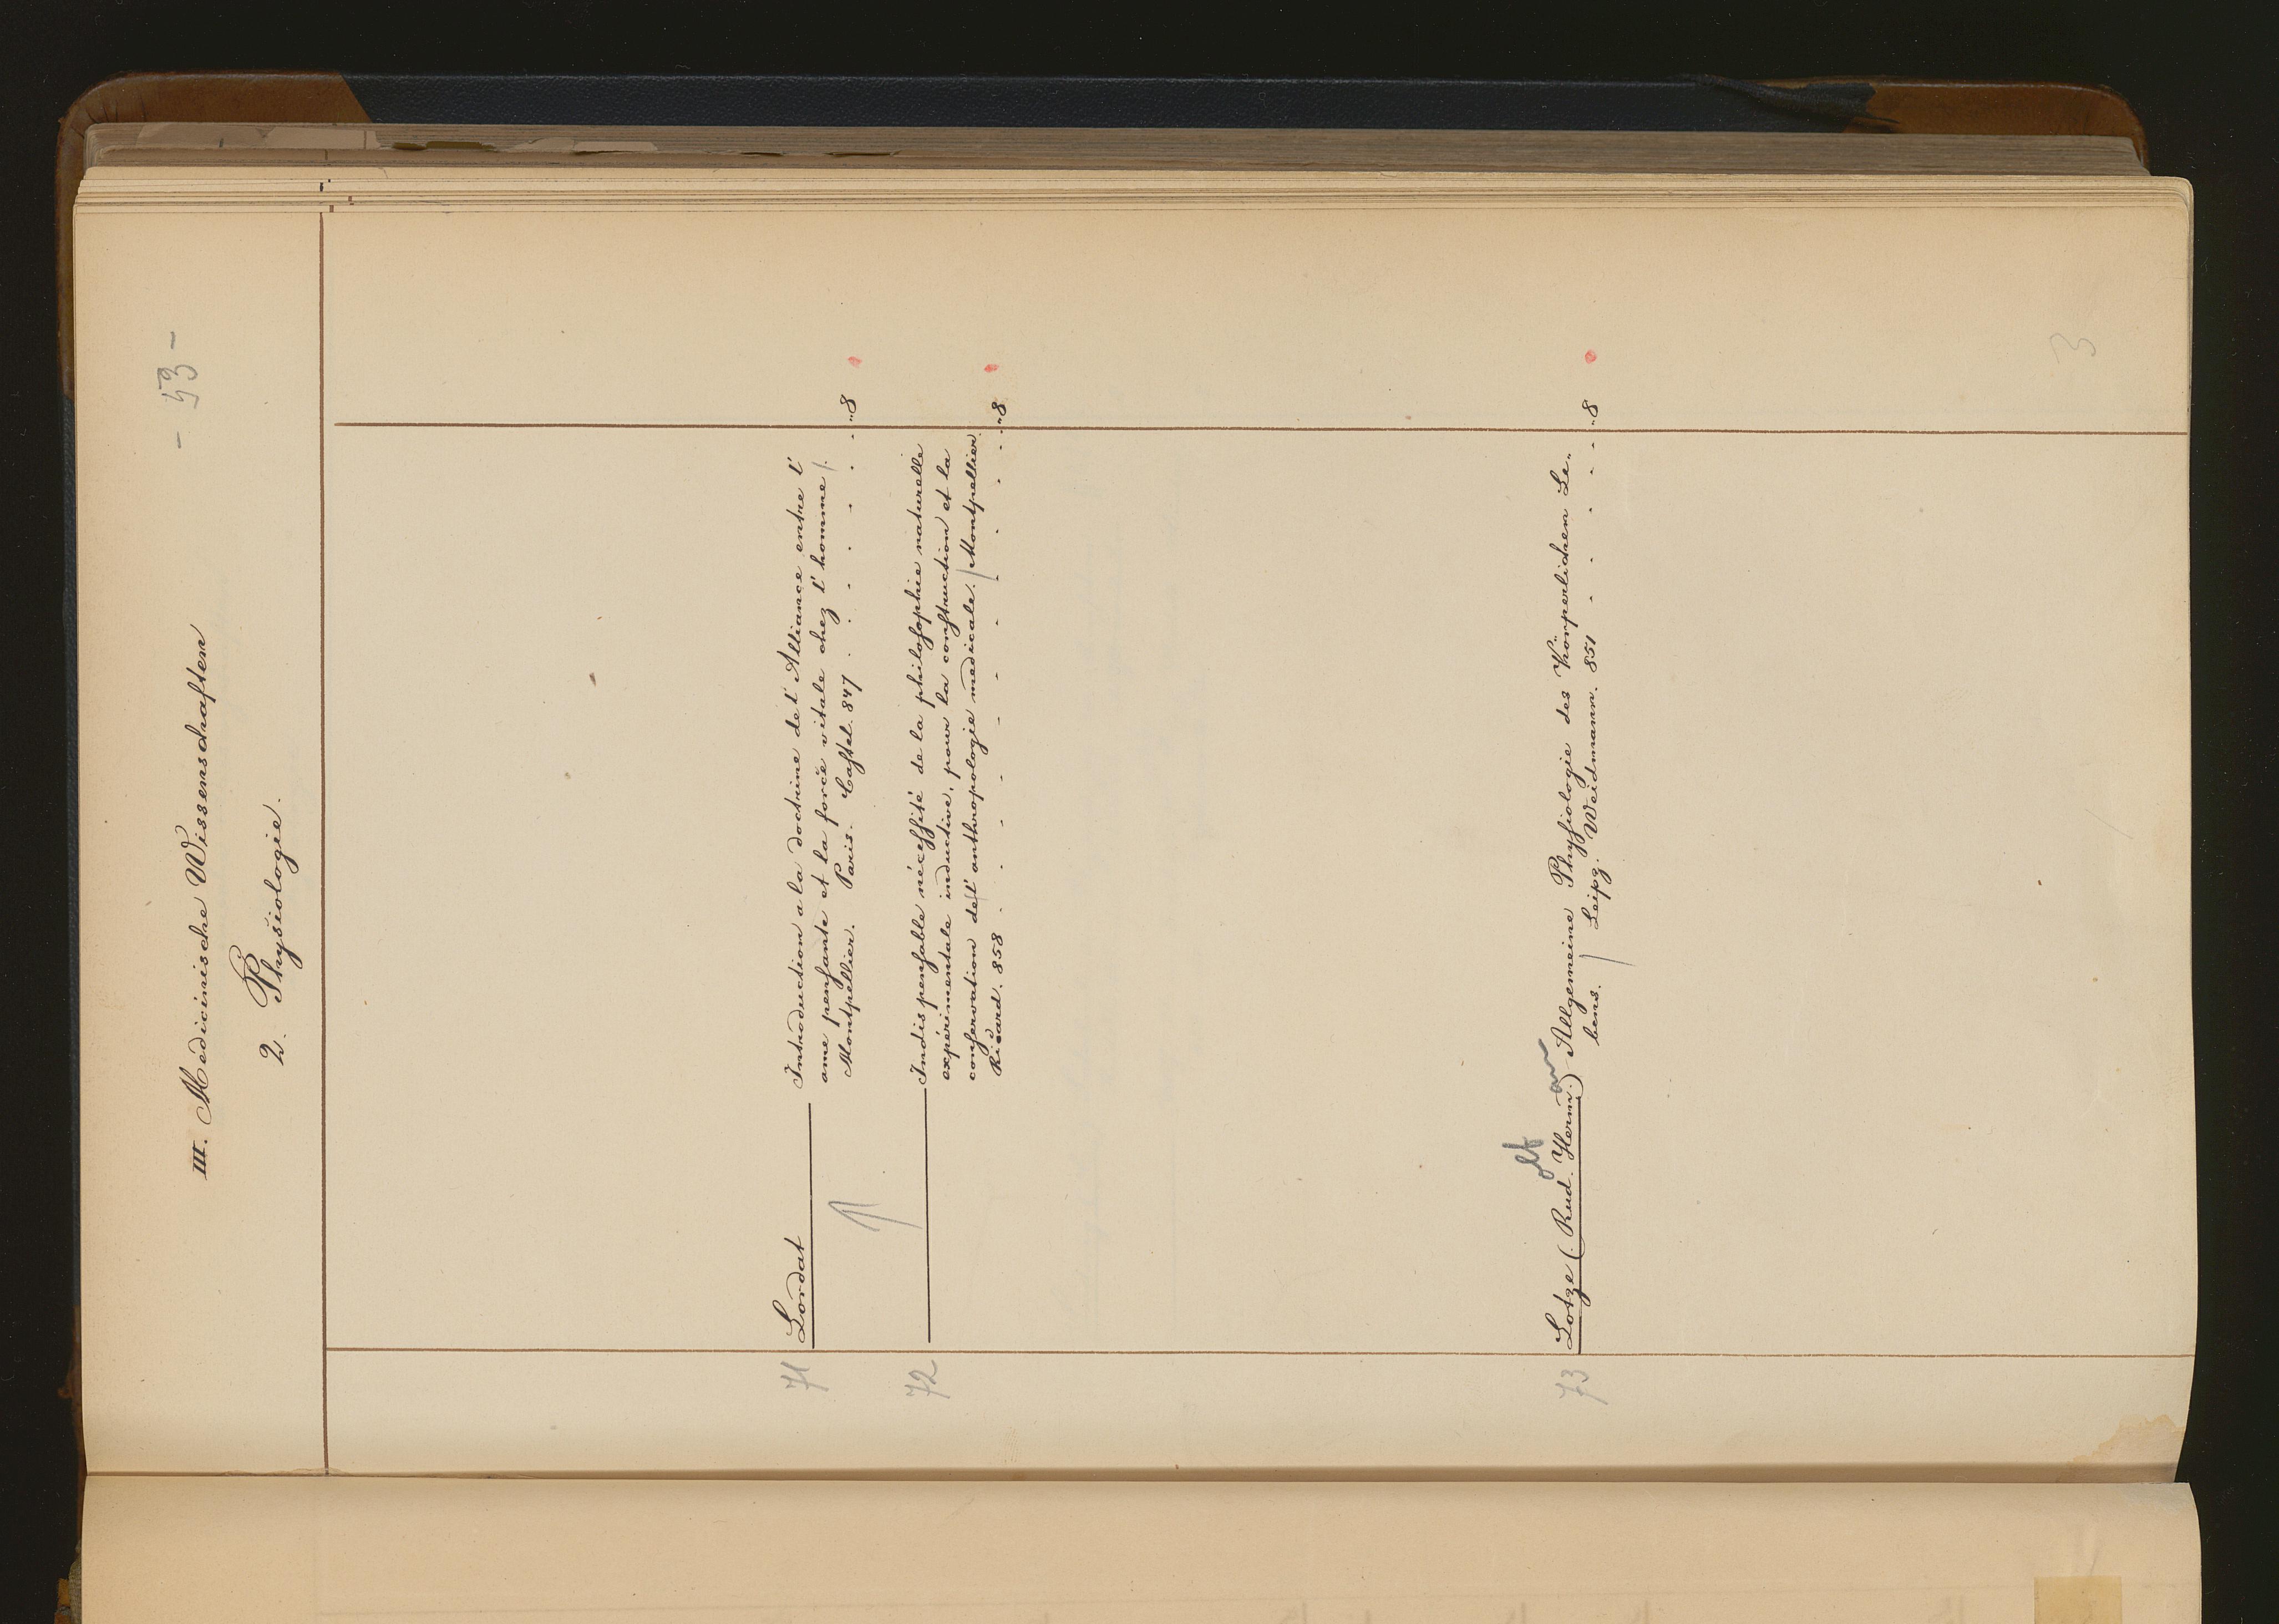 - 53 -
III. Medicinische Wissenschaften
2. Physiologie.
71 Lordat Introduction a la doctrine de l' Alliance entre l'
ame pensante et la force vitale chez l' homme /.
Montpellier. Paris. Cassel. 847 . . . . . . . "8
72 Indispensable nécessité de la philosophie naturelle
expérimentale inductive, pour la construction et la
conservation de l' anthropologie medicale. / Montpellier.
Ricard. 858 . . . . . . . . . . . "8
73 Lotze (Rud. olf Herm. ann) Allgemeine Physiologie des Körperlichen Le„
bens. / Leipz. Weidmann. 851 . . . . . . "8
3